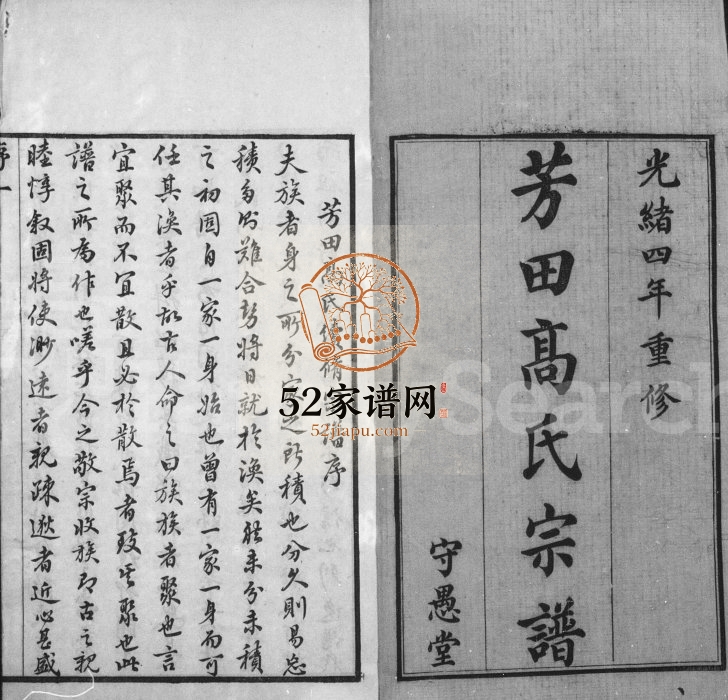 光緒四年重修
芳田高氏宗譜
守愚堂
芳田高氏續脩宗譜序
夫族者身之所分家之所積也分久則易忘
積多則難合勢將日就於渙矣然未分未積
之初固自一家一身始也曾有一家一身而可
任其渙者乎故古人命之曰族族者聚也言
宜聚而不宜散且必於散焉者致其聚也此
譜之所為作也嗟乎今之敬宗收族即古之親
睦惇敘固將使渺遠者親疎逖者近心甚盛
序一
52家谱网
52jiapu.com
Search